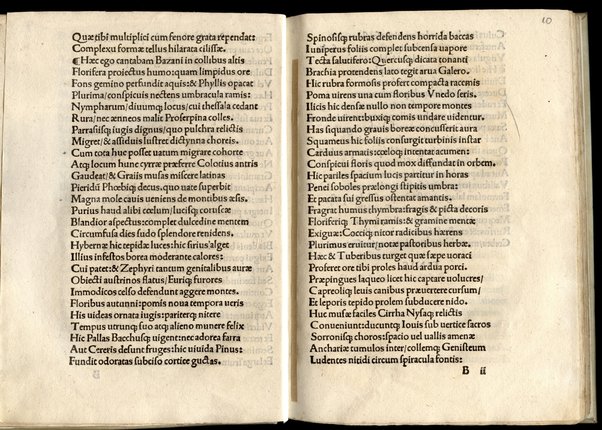 Quæ tibi multiplici cum fenore grata rependat:
Complexu formæ tellus hilarata cilissæ.
¶ Hæc ego cantabam Bazani in collibus altis
Florifera proiectus humo: quam limpidus ore
Fons gemino perfundit aquis: & Phyllis opacat
Plurima/conspicuis nectens umbracula ramis:
Nympharum/diuumq; locus/cui thessala cedant
Rura/nec ænneos malit Proserpina colles.
Parrasiisq; iugis dignus/quo pulchra relictis
Migret/& assiduis lustret dictynna choreis.
Cum tota huc posset uatum migrare cohorte
Atq; locum hunc cyrræ præferre Colotius antris
Gaudeat/& Graiis musas miscere latinas
Pieridū Phœbiq; decus. quo nate superbit
Magna mole cauis veniens de montibus æsis.
Purius haud alibi cœlum/lucisq; coruscæ
Blandior aspectus: complet dulcedine mentem
Circumfusa dies sudo splendore renidens.
Hybernæ hic tepidæ luces: hic sirius alget
Illius infestos borea moderante calores:
Cui patet: & Zephyri tantum genitalibus auræ
Obiecti austrinos flatus/Euriq; furores
Immodicos celso defendunt aggere montes.
Floribus autunni: pomis noua tempora ueris
His uideas ornata iugis: pariterq; nitere
Tempus utrunq; suo atq; alieno munere felix
Hic Pallas Bacchusq; uigent: nec adorea farra
Aut Cereris desunt fruges: hic uiuida Pinus:
Fundit odoratas subciso cortice guttas.
10
Spinosisq; rubras defendens horrida baccas
Iuniperus foliis complet subcensa uapore
Tecta salutifero: Quercusq; dicata tonanti
Brachia protendens lato tegit arua Galero.
Hic rubra formosis profert compacta racemis
Poma uirens una cum floribus Vnedo seris.
Ilicis hic densæ nullo non tempore montes
Fronde uirent: buxiq; comis undare uidentur.
Has siquando grauis boreæ concusserit aura
Squameus hic foliis consurgit turbinis instar
Carduus armatis: cœloq; intentat acumen:
Conspicui floris quod mox diffundat in orbem.
Hic pariles spacium lucis partitur in horas
Penei soboles prælongi stipitis umbra:
Et patata sui gressus ostentat amantis.
Fragrat humus thymbra: fragis & picta decoris
Floriferiq; Thymi ramis: & gramine mentæ
Exiguæ: Cocciq; nitor radicibus hærens
Plurimus eruitur/notæ pastoribus herbæ.
Hæc & Tuberibus turget quæ sæpe uoraci
Proferet ore tibi proles haud ardua porci.
Præpingues laqueo licet hic captare uolucres/
Capreoliq; leuis canibus præuertere cursum/
Et leporis tepido prolem subducere nido.
Huc musæ faciles Cirrha Nysaq; relictis
Conueniunt: ducuntq; Iouis sub uertice sacros
Sorronisq; choros: spacio uel uallis amenæ
Anchariæ tumulos inter/collemq; Genistum
Ludentes nitidi circum spiracula fontis:
B ii